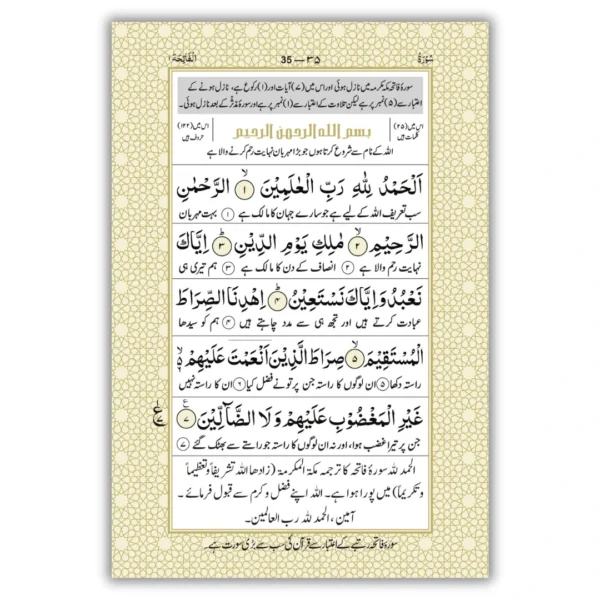 سُوْرَةُ 35 — ۳۵ اَلْفَاتِحَة ۱
سورۂ فاتحہ مکہ مکرمہ میں نازل ہوئی اور اس میں (۷) آیات اور (۱) رکوع ہے، نازل ہونے کے
اعتبار سے (۵) نمبر پر ہے لیکن تلاوت کے اعتبار سے (۱) نمبر پر ہے اور سورۂ مدثر کے بعد نازل ہوئی۔
اس میں (۲۵) کلمات ہیں
بسم الله الرحمن الرحيم
اس میں (۱۲۲) حروف ہیں
اللہ کے نام سے شروع کرتا ہوں جو بڑا مہربان نہایت رحم کرنے والا ہے
اَلْحَمْدُ لِلّٰهِ رَبِّ الْعٰلَمِيْنَ ۙ﴿۱﴾ الرَّحْمٰنِ
سب تعریف اللہ کے لیے ہے جو سارے جہان کا مالک ہے ﴿۱﴾ بہت مہربان
الرَّحِيْمِ ۙ﴿۲﴾ مٰلِكِ يَوْمِ الدِّيْنِ ؕ﴿۳﴾ اِيَّاكَ
نہایت رحم والا ہے ﴿۲﴾ انصاف کے دن کا مالک ہے ﴿۳﴾ ہم تیری ہی
نَعْبُدُ وَاِيَّاكَ نَسْتَعِيْنُ ؕ﴿۴﴾ اِهْدِنَا الصِّرَاطَ
عبادت کرتے ہیں اور تجھ ہی سے مدد چاہتے ہیں ﴿۴﴾ ہم کو سیدھا
الْمُسْتَقِيْمَ ۙ﴿۵﴾ صِرَاطَ الَّذِيْنَ اَنْعَمْتَ عَلَيْهِمْ ۙ۬
راستہ دکھا ﴿۵﴾ ان لوگوں کا راستہ جن پر تو نے فضل کیا ﴿۶﴾ ان کا راستہ نہیں
غَيْرِ الْمَغْضُوْبِ عَلَيْهِمْ وَلَا الضَّآلِّيْنَ ۧ﴿۷﴾
جن پر تیرا غضب ہوا، اور نہ ان لوگوں کا راستہ جو راستے سے بھٹک گئے ﴿۷﴾
الحمد للہ سورۂ فاتحہ کا ترجمہ مکۃ المکرمۃ (زادھا اللہ تشریفاً و تعظیماً
و تکریماً) میں پورا ہوا ہے۔ اللہ اپنے فضل و کرم سے قبول فرمائے۔
آمین، الحمد للہ رب العالمین۔
سورۂ فاتحہ رتبے کے اعتبار سے قرآن کی سب سے بڑی سورت ہے۔